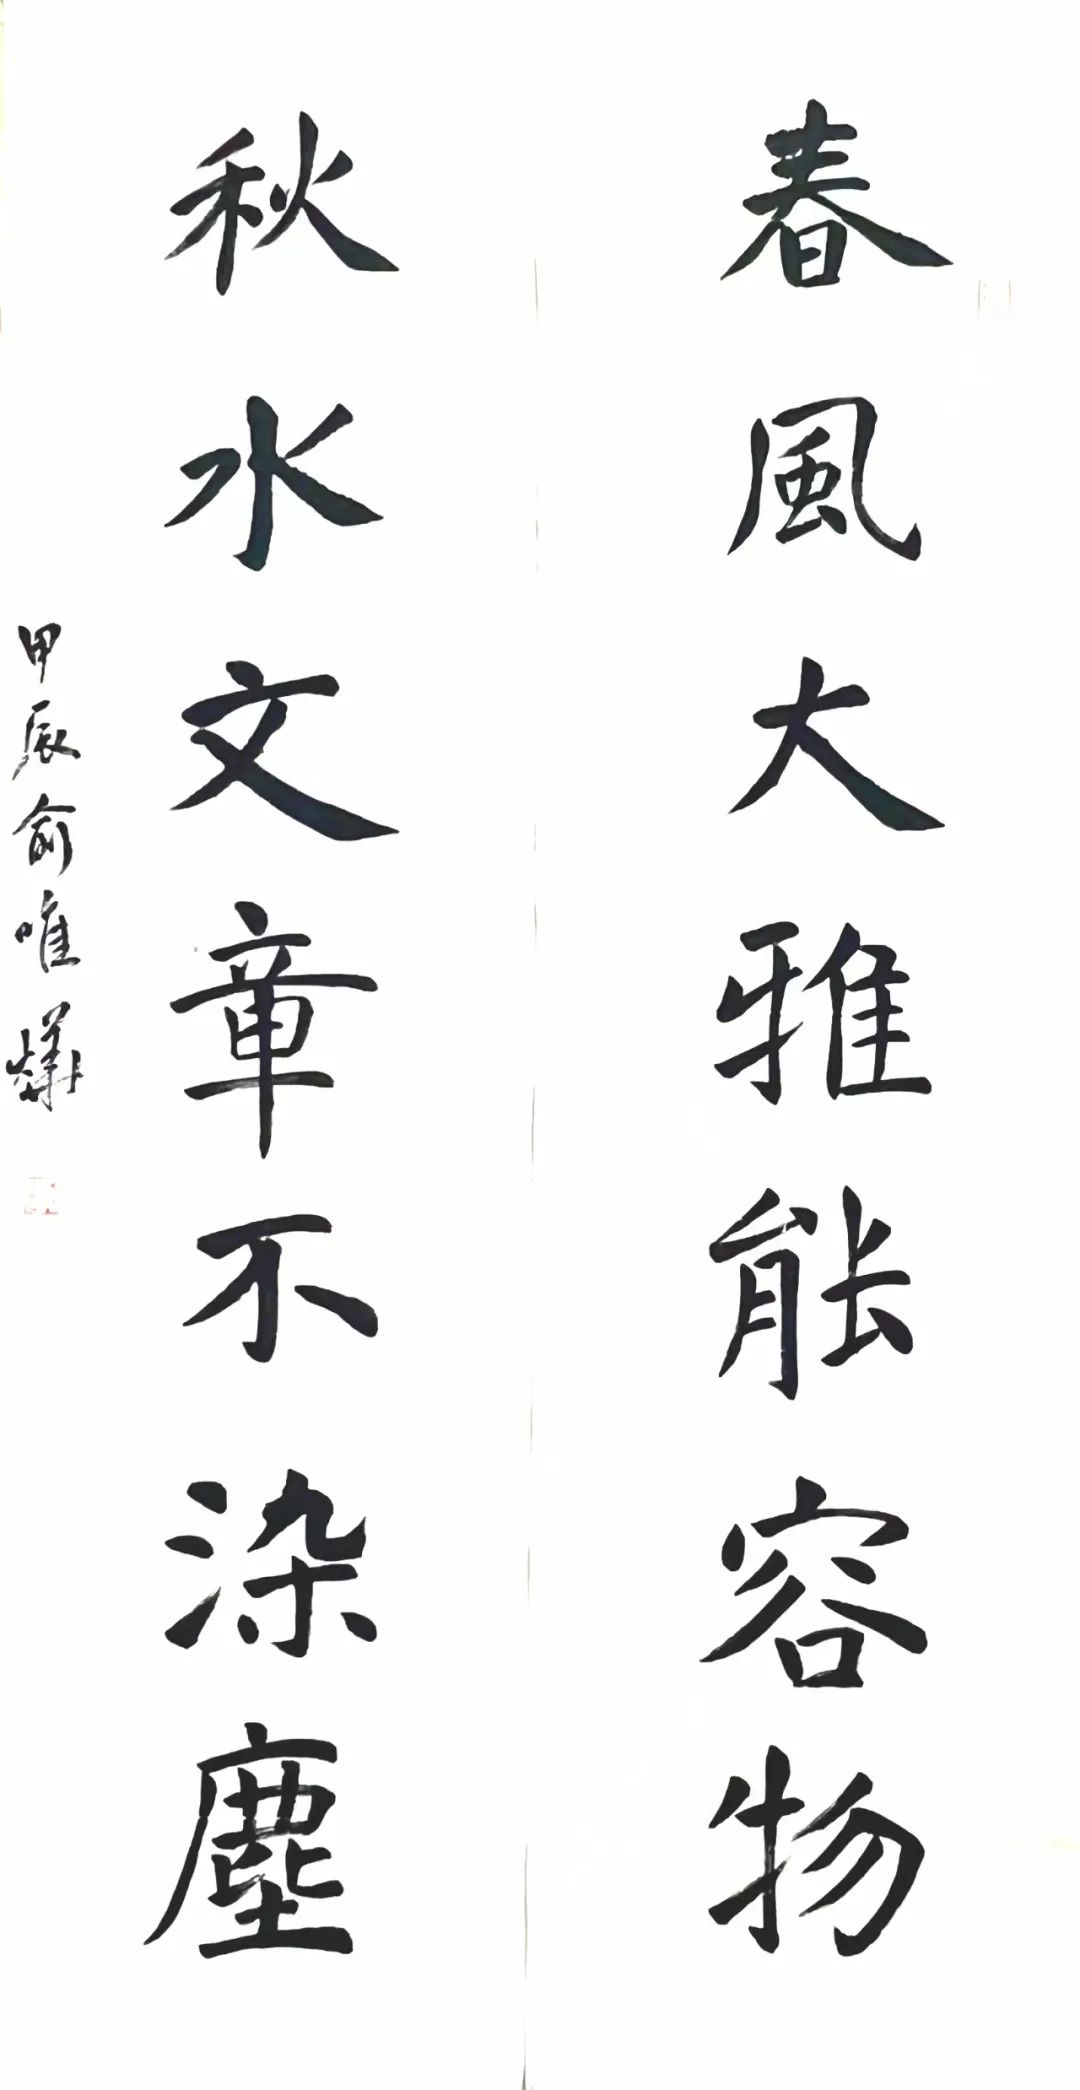 春風大雅能容物
秋水文章不染塵
甲辰俞唯燁